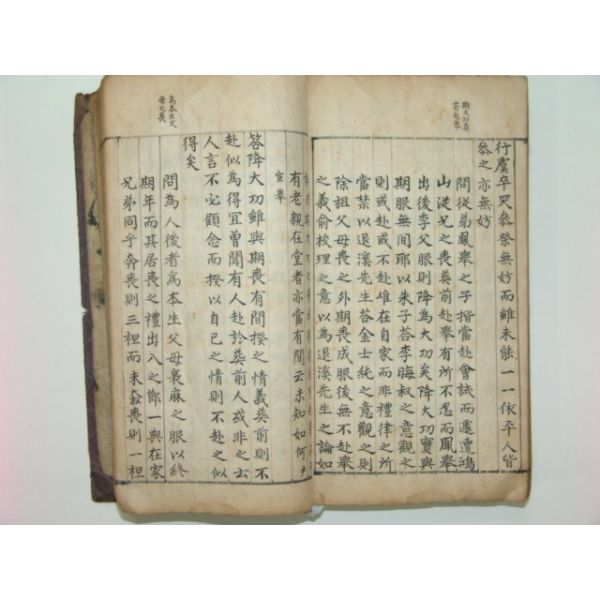 期大功葬
前赴擧
行虞卒哭祭祭無妨而雖未能一一依平人皆
祭之亦無妨
問從弟鳳擧之子揩當赴會試而遽遭鴻
山從兄之喪葬前赴擧有所不忍而鳳擧
出後季父服則降爲大功矣降大功實與
期服無間耶以朱子答李晦叔之意觀之
則或赴或不赴唯在自家而非禮律之所
當禁以退溪先生答金士純之意觀之則
除祖父母喪之外期喪成服後無不赴擧
之義俞校理之意以爲退溪先生之論如
有老親在堂者亦當有間云未知如何尹
宣擧
答降大功雖與期喪有間揆之情義葬前則不
赴似爲得宜曾聞有人赴於葬前人或非之云
人言不必顧念而揆以自己之情則不赴之似
得矣
爲本生父
母之喪
問爲人後者爲本生父母衰麻之服以終
期年而其居喪之禮出入之節一與在家
兄弟同乎奔喪則三袒而未奔喪則一袒